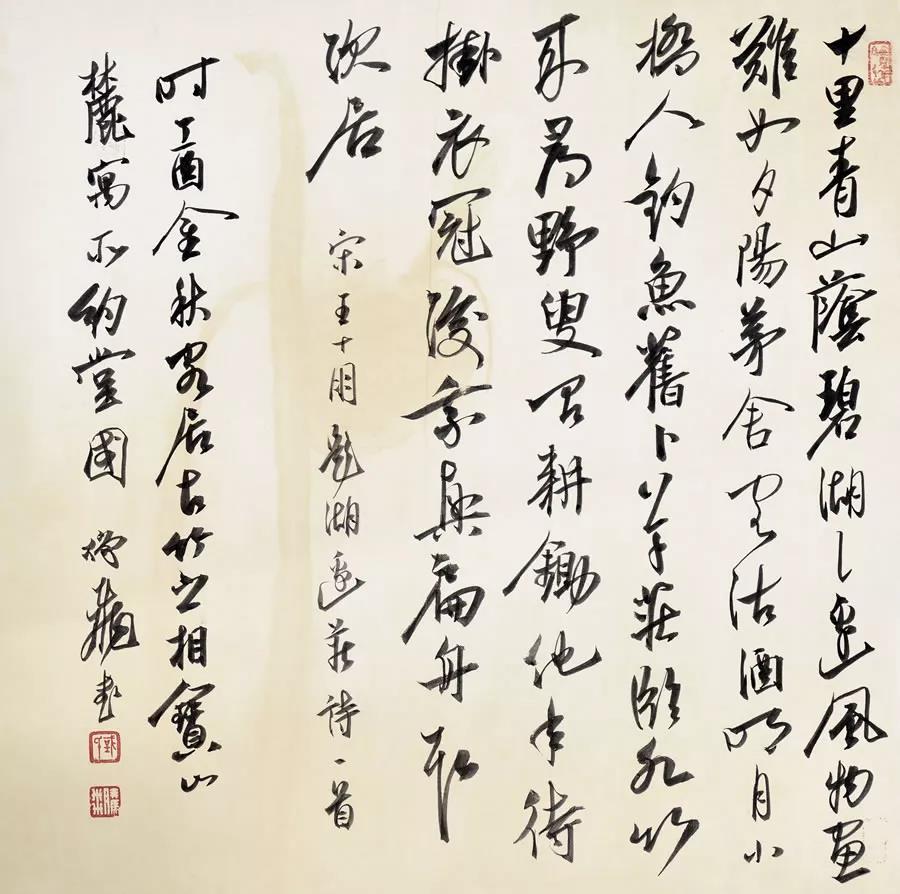 十里青山蔭碧湖〻邊風物畫
難如夕陽茅舍客沽酒明月小
橋人釣魚舊卜草莊臨水竹
來尋野叟問耕鋤他年待
掛衣冠後乘興扁舟取
次居 宋王十朋題湖邊莊詩一首
时丁酉金秋客居古竹之相寶山
麓寓所納堂國 書